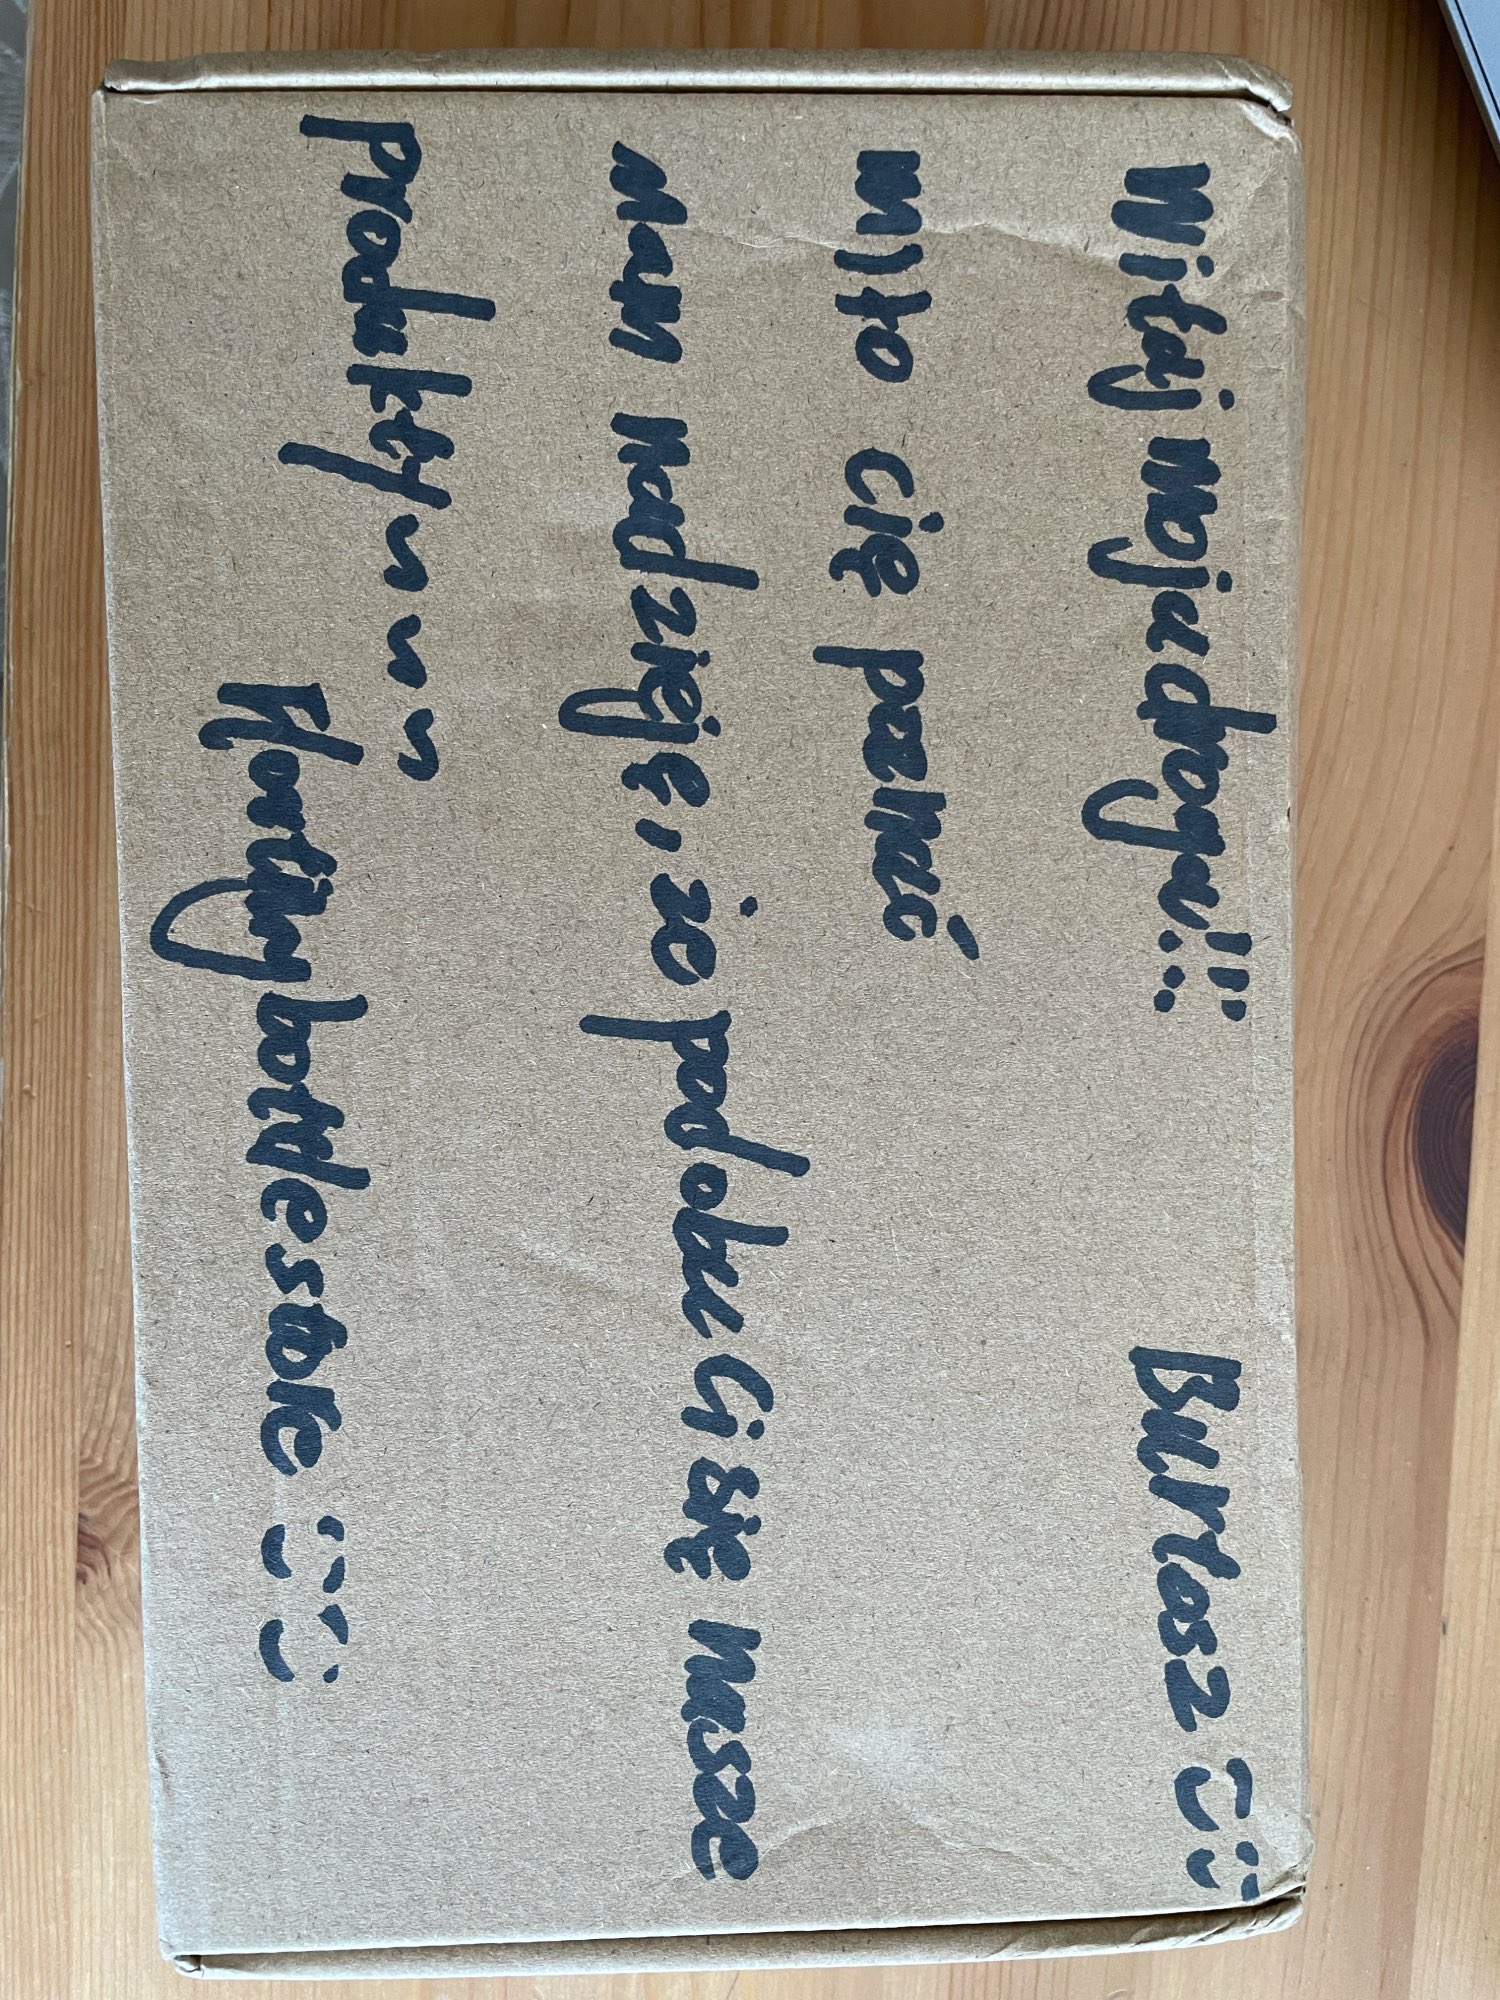 Witaj moja droga!!! Bartosz
miło cię poznać
mam nadzieję, że podoba Ci się nasze
produkty ~ ~ ~
Floatingbottlestore